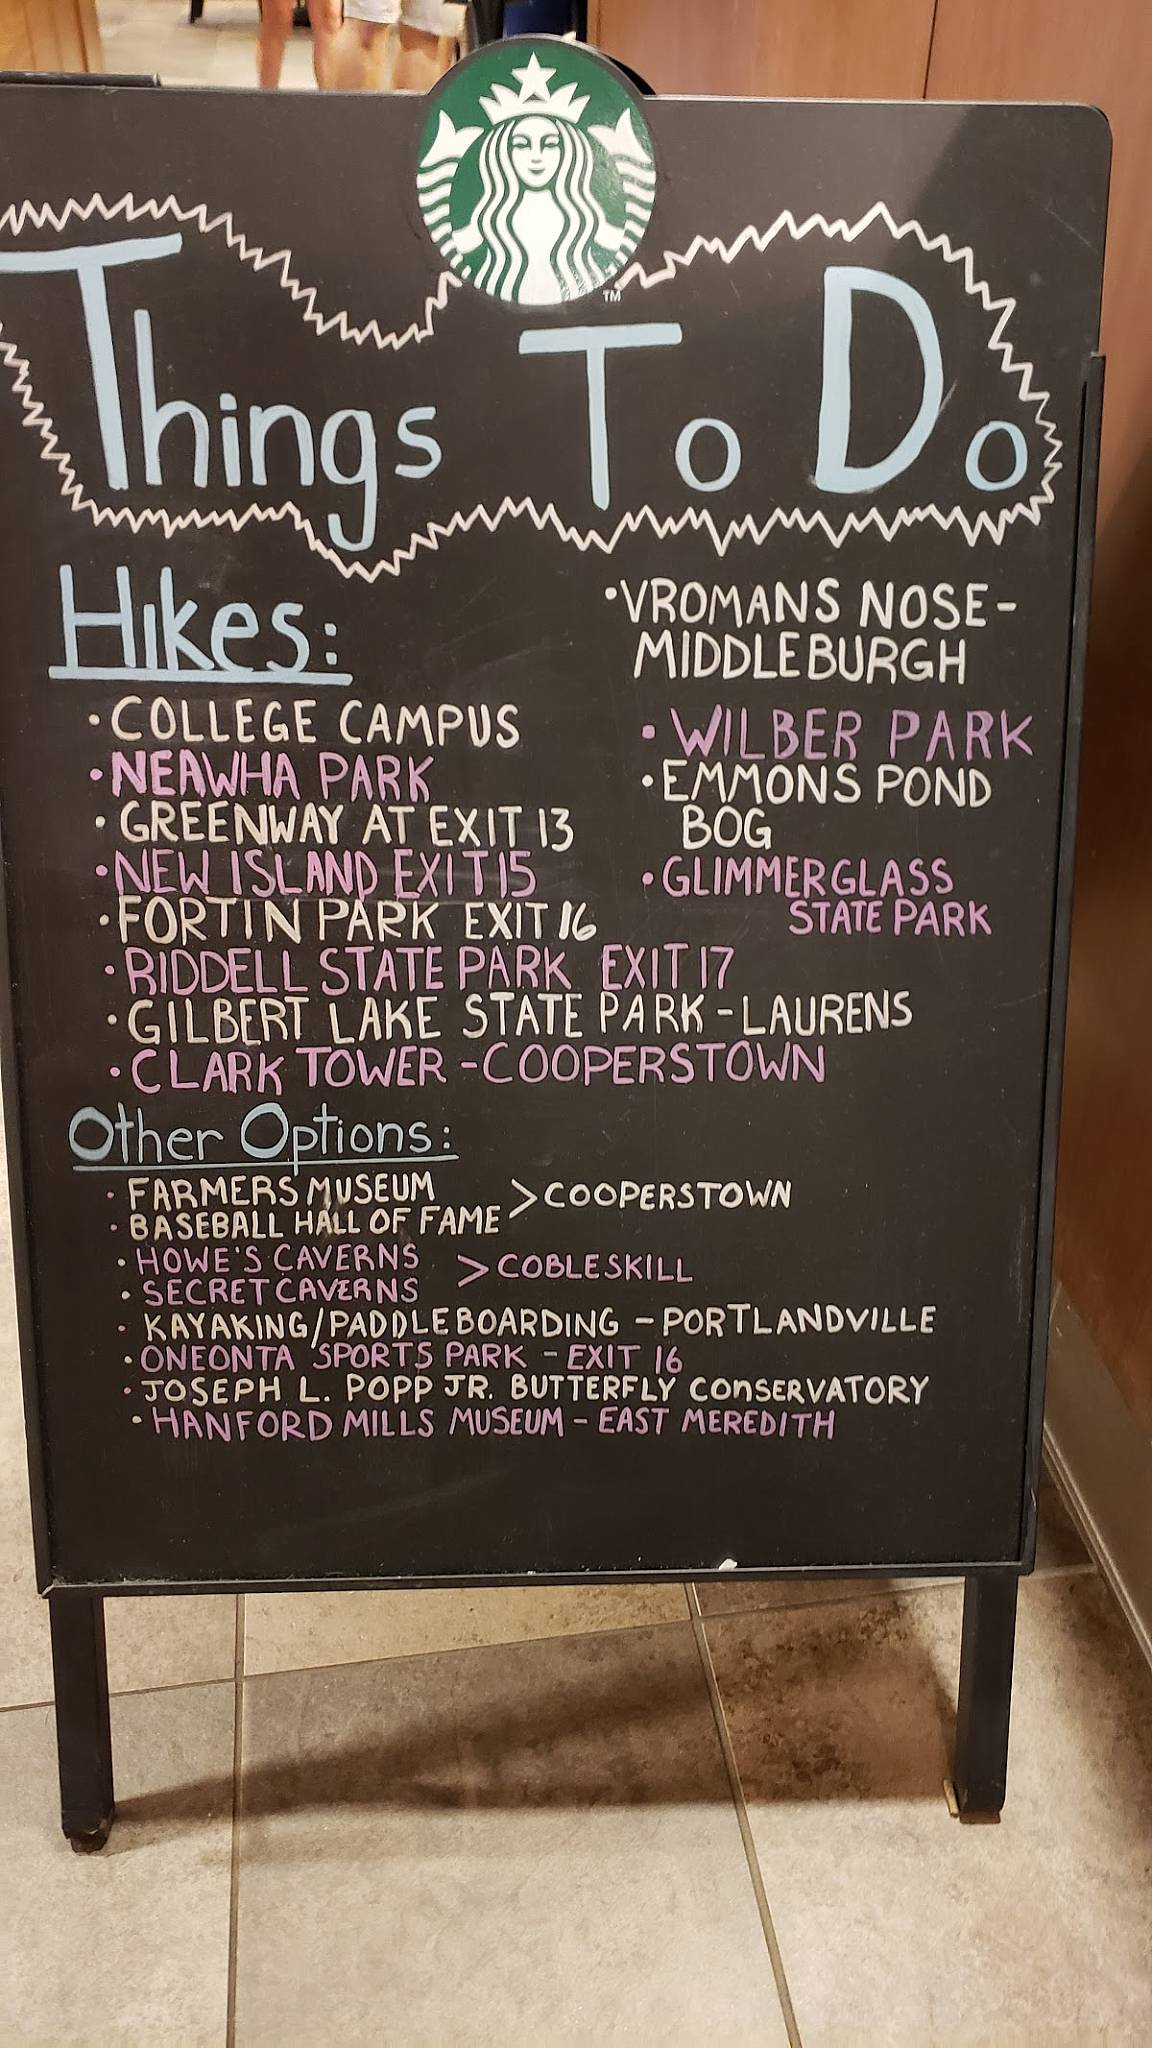 TM
Things To Do
Hikes:
• COLLEGE CAMPUS
• NEAWHA PARK
• GREENWAY AT EXIT 13
• NEW ISLAND EXIT 15
• FORTIN PARK EXIT 16
• RIDDELL STATE PARK EXIT 17
• GILBERT LAKE STATE PARK - LAURENS
• CLARK TOWER - COOPERSTOWN
• VROMANS NOSE -
MIDDLEBURGH
• WILBER PARK
• EMMONS POND
BOG
• GLIMMERGLASS
STATE PARK
Other Options:
• FARMERS MUSEUM
• BASEBALL HALL OF FAME > COOPERSTOWN
• HOWE'S CAVERNS
• SECRET CAVERNS > COBLESKILL
• KAYAKING/PADDLEBOARDING - PORTLANDVILLE
• ONEONTA SPORTS PARK - EXIT 16
• JOSEPH L. POPP JR. BUTTERFLY CONSERVATORY
• HANFORD MILLS MUSEUM - EAST MEREDITH